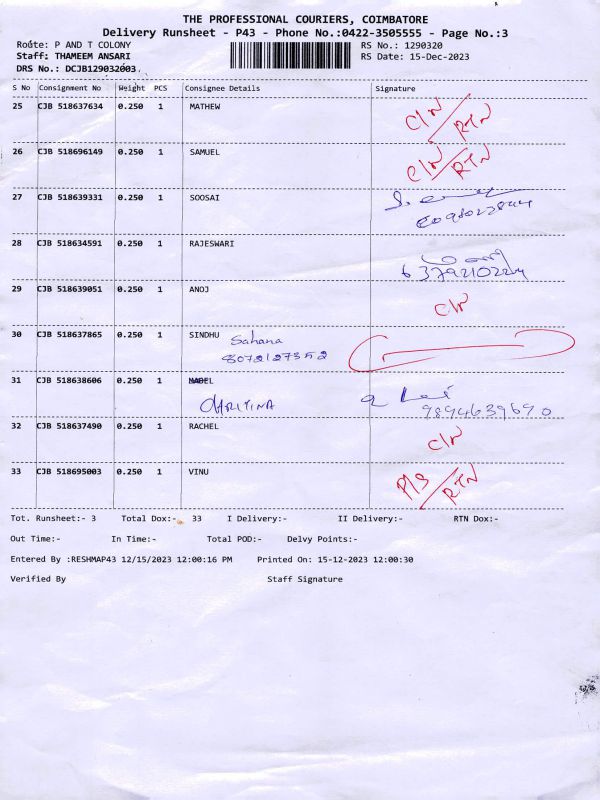 THE PROFESSIONAL COURIERS, COIMBATORE
Delivery Runsheet - P43 - Phone No.:0422-3505555 - Page No.:3
Route: P AND T COLONY RS No.: 1290320
Staff: THAMEEM ANSARI RS Date: 15-Dec-2023
DRS No.: DCJB129032003
S No Consignment No Weight PCS Consignee Details Signature
25 CJB 518637634 0.250 1 MATHEW C/N/RTN
26 CJB 518696149 0.250 1 SAMUEL C/N/RTN
27 CJB 518639331 0.250 1 SOOSAI
28 CJB 518634591 0.250 1 RAJESWARI
6379210224
29 CJB 518639051 0.250 1 ANOJ C/N
30 CJB 518637865 0.250 1 SINDHU Sahana
8072127352
31 CJB 518638606 0.250 1
9894639690
32 CJB 518637490 0.250 1 RACHEL C/N
33 CJB 518695003 0.250 1 VINU P/S/RTN
Tot. Runsheet:- 3 Total Dox:- 33 I Delivery:- II Delivery:- RTN Dox:-
Out Time:- In Time:- Total POD:- Delvy Points:-
Entered By :RESHMAP43 12/15/2023 12:00:16 PM Printed On: 15-12-2023 12:00:30
Verified By Staff Signature